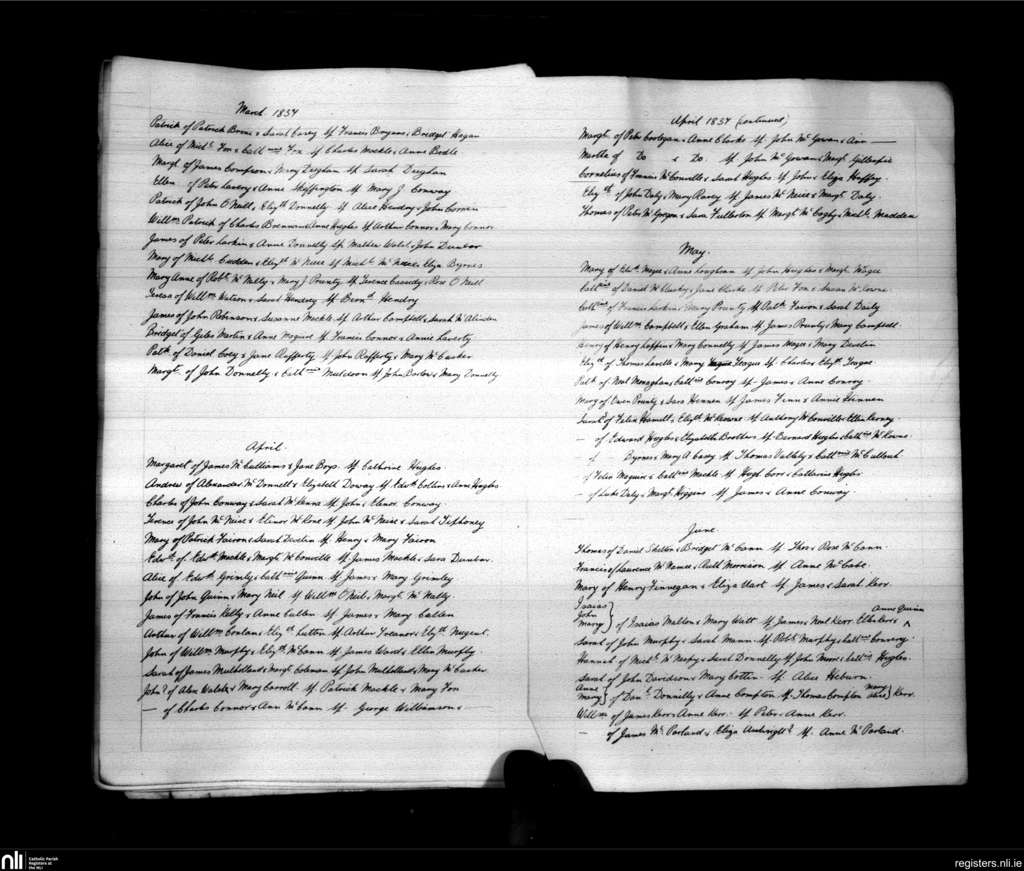 March 1834
Patrick of Patrick Boone & Sarah Casey Sp Francis Brynne & Bridget Hagan
Alice of Mich.l Fox & Cath Fox Sp Charles Mackle & Anne
Marg.t of James Compton & Mary Deighan Sp Sarah Deighan
Ellen of Peter Lavory & Anne Skiffington Sp Mary J Conway
Patrick of John O'Neill & Eliz.th Donnelly Sp Alice Hendry & John
Will.m Patrick of Charles Brennan & Anne Hughes Sp Arthur Connor & Mary Connor
James of Peter Larkin & Anne Donnelly Sp Walsh & John Dunbar
Mary of Mich.l Cudden & Eliz.th McNeice Sp Mich.l McNeice & Eliza Byrnes
Mary Anne of Rob.t McNally & Mary J Prunty Sp Terence Cassidy & Rose O'Neill
Teresa of Will.m Watson & Sarah Hendry Sp Bern.d Hendry
James of John Robinson & Susanna Mackle Sp Arthur Campbell & Sarah McAlinden
Bridget of Giles Martin & Anne Maguire Sp Francis Connor & Annie Laverty
Pat.k of Daniel Coey & Jane Rafferty Sp John Rafferty & Mary McCusker
Marg.t of John Donnelly & Cath Muldoon Sp John Barlow & Mary Donnelly
April
Margaret of James McCullians & Jane Boyd Sp Catherine Hughes
Andrew of Alexander McDonnell & Elizabeth Doway Sp Edw.d Collins & Ann Hughes
Charles of John Conway & Sarah McKenna Sp John & Elenor Conway
Terence of John McNeice & Elinor McKone Sp John McNeice & Sarah
Mary of Patrick Fairon & Sarah Devlin Sp Henry & Mary Fairon
Edw.d of Edw.d Mackle & Marg.t McConville Sp James Mackle & Sara Dunbar
Alice of Edw.d Grimly & Cath Quinn Sp James & Mary Grimley
John of John Quinn & Mary Neil Sp Will.m O'Neil & Marg.t McNally
James of Francis Kelly & Anne Cullen Sp James & Mary Cullen
Arthur of Will.m Conlan & Eliz.th Sp Arthur & Eliz.th Nugent
John of Will.m Murphy & Eliz.th McCann Sp James Ward & Ellen Murphy
Sarah of James Mulholland & Marg.t Coleman Sp John Mulholland & Mary McCusker
John? of Alex Walsh & Mary Carroll Sp Patrick Mackle & Mary Fox
— of Charles Connor & Ann McCann Sp George Williamson &
April 1834 (continued)
Marg.t of Peter & Anne Clarke Sp John McGowan & Ann —
Martha of Do & Do Sp John McGowan & Marg.t Gillespie
Cornelius of Francis McConville & Sarah Hughes Sp John & Eliza Haffey
Eliz.th of John Daly & Mary Sp James McNeice & Marg.t Daly
Thomas of Peter McGorgan & Sara Fullerton Sp Marg.t & Mich.l Madden
May.
Mary of Edw.d Magee & Anne Loughran Sp John Hughes & Marg.t Magee
Cath of Daniel McClusky & Jane Clarke Sp Peter Fox & Susan McCone
Cath of Francis Larkin & Mary Prunty Sp Pat.k Fairon & Sarah Daily
James of Will.m Campbell & Ellen Graham Sp James Prunty & Mary Campbell
Henry of Henry Loppin & Mary Connelly Sp James Magee & Mary Devlin
Eliz.th of Thomas Lavelle & Mary Teague Sp Charles & Eliz.th Teague
Pat.k of Neal Monaghan & Cath Conroy Sp James & Anne Conroy.
Mary of Owen Prunty & Sara Hinnen Sp James Finn & Annie Hinnen
Sarah of Felix Hamill & Eliz.th McKeowne Sp Anthony McConville & Ellen Kerney.
— of Edward Hughes & Elizabeth Brothers Sp Bernard Hughes & Cath McKeone.
— of Byrnes & Mary A Casey Sp Thomas Vallely & Cath McCullouch
of Felix Maguire & Cath Mackle Sp Hugh Corr & Catherine Hughes
— of Luke Daly & Marg.t Higgins Sp James & Anne Conway
June
Thomas of Daniel Skelton & Bridget McCann Sp Thos & Rose McCann.
Francis of Laurence McNamee & Ruth Morrison Sp Anne McCabe.
Mary of Henry Finnegan & Eliza Uart Sp James & Sarah Kerr.
Isaias
John
Mary } of Isaias Mallon & Mary Watt Sp James & Neal Kerr. Kerr & Anne Quinn
Sarah of John Murphy & Sarah Mann Sp Rob.t Murphy & Cath Conway.
Hannah of Mich.l McVeigh & Sarah Donnelly Sp John Morris & Cath Hughes.
Sarah of John Davidson & Mary Cotter Sp Alice Heburn.
Anne
Mary } of Dan.l Donnelly & Anne Compton Sp Thomas Compton Mary Alice } Kerr.
Will.m of James Kerr & Anne Kerr. Sp Peter & Anne Kerr.
— of James McParland & Eliza Sp. Anne McParland.
nli
Catholic Parish
Registers at
the NLI
registers.nli.ie